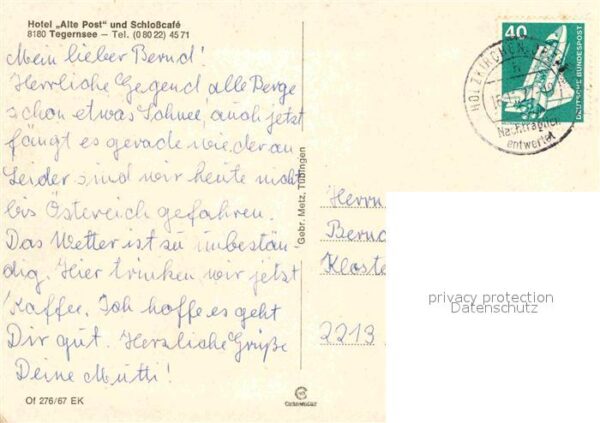 Hotel „Alte Post" und Schloßcafé
8180 Tegernsee — Tel. (0 80 22) 45 71
Mein lieber Bernd!
Herrliche Gegend alle Berge
schon etwas Schnee, auch jetzt
fängt es gerade wieder an
Leider sind wir heute nicht
bis Östereich gefahren.
Das Wetter ist zu unbestän-
dig. Hier trinken wir jetzt
Kaffee. Ich hoffe es geht
Dir gut. Herzliche Grüße
Deine Mutti!
Of 276/67 EK
Gebr. Metz, Tübingen
40
DEUTSCHE BUNDESPOST
HOLZKIRCHEN
Nachträglich
entwertet
Herrn
Bernd
Kloste
2213
privacy protection
Datenschutz